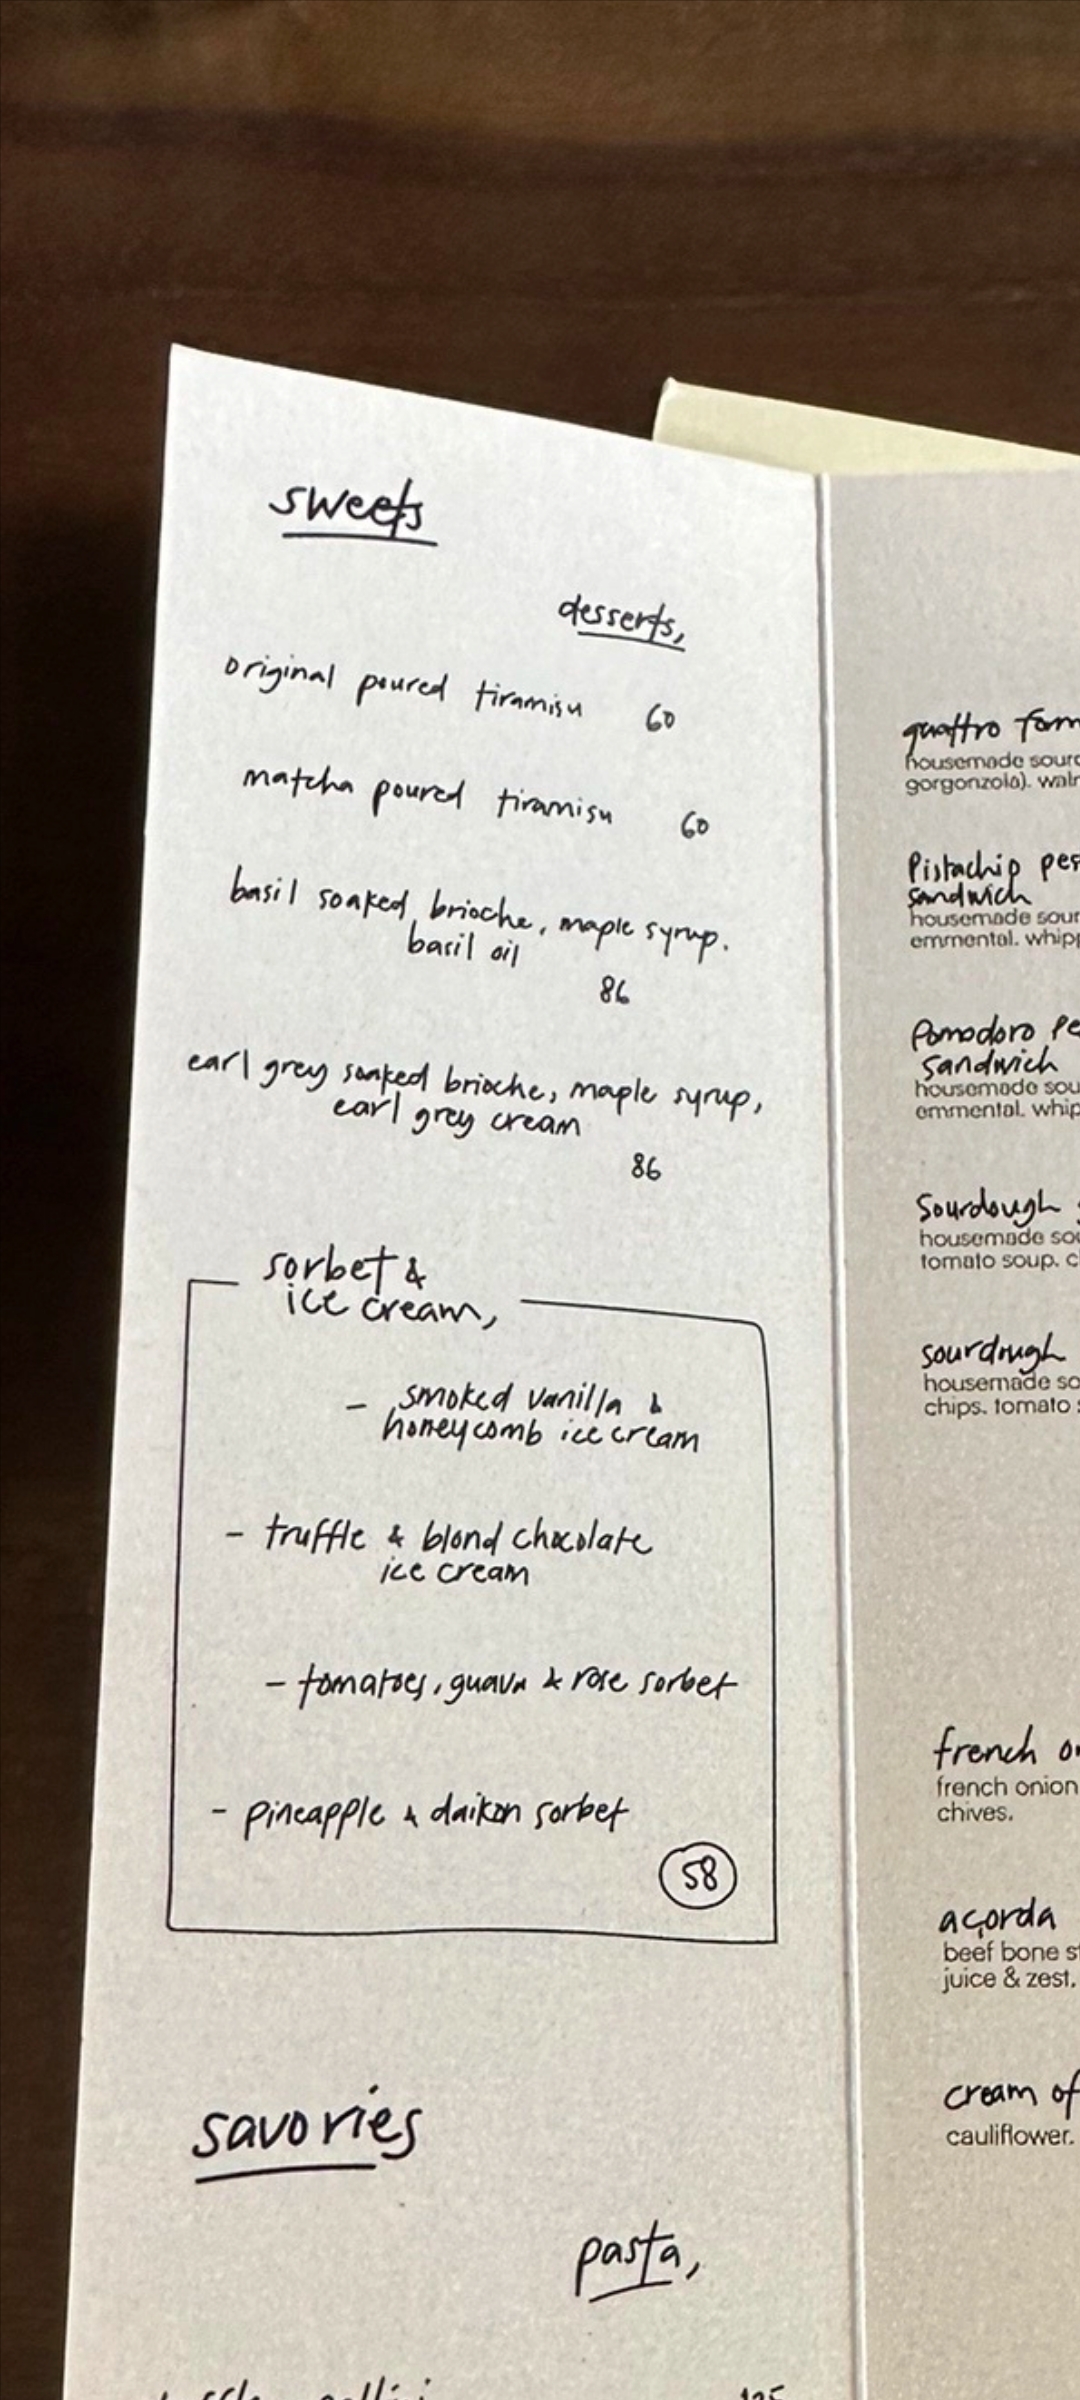 sweets
desserts,
original poured tiramisu 60
matcha poured tiramisu 60
basil soaked brioche, maple syrup.
basil oil
86
earl grey soaked brioche, maple syrup,
earl grey cream
86
sorbet &
ice cream,
- smoked vanilla &
honeycomb ice cream
- truffle & blond chocolate
ice cream
- tomatoes, guava & rose sorbet
- pineapple & daikon sorbet
58
savories
pasta,
quattro
housemade
gorgonzola).
Pistachio
sandwich
housemade
emmental.
Pomodoro
sandwich
housemade
emmental.
Sourdough
housemade
tomato soup.
sourdough
housemade
chips. tomato
french
french onion
chives.
açorda
beef bone
juice & zest.
cream of
cauliflower.